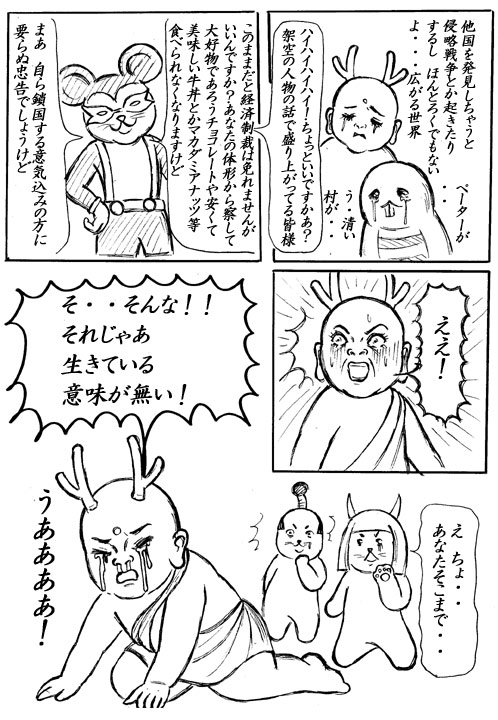 他国を発見しちゃうと
侵略戦争とか起きたり
するし ほんとろくでもない
よ・・・広がる世界
・・
ペーターが
う・清い
村が・・
ハイハイハイハイ！ちょっといいですかあ？
架空の人物の話で盛り上がってる皆様
このままだと経済制裁は免れませんが
いいんですか？あなたの体形から察して
大好物であろうチョコレートや安くて
美味しい牛丼とかマカダミアナッツ等
食べられなくなりますけど
まあ 自ら鎖国する意気込みの方に
要らぬ忠告でしょうけど
ええ！
そ・・そんな！！
それじゃあ
生きている
意味が無い！
え ちょ・・
あなたそこまで・・
うああああ！